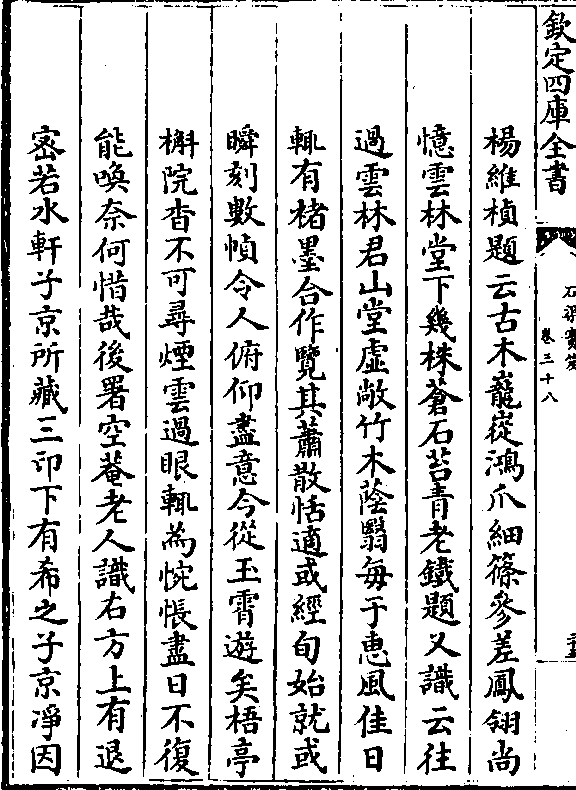 欽定四庫全書
石渠寶笈
卷三十八
楊維楨題云古木巃嵸鴻爪細篠參差鳳翎尚
憶雲林堂下幾株蒼石苔青老鐵題又識云往
過雲林君山堂虛敞竹木蔭翳每于惠風佳日
輒有楮墨合作覽其蕭散恬適或經旬始就或
瞬刻數幀令人俯仰盡意今從玉霄遊矣梧亭
槲院杳不可尋煙雲過眼輒為惋悵盡日不復
能喚奈何惜哉後署空菴老人識右方上有退
密若水軒子京所藏三印下有希之子京凈因